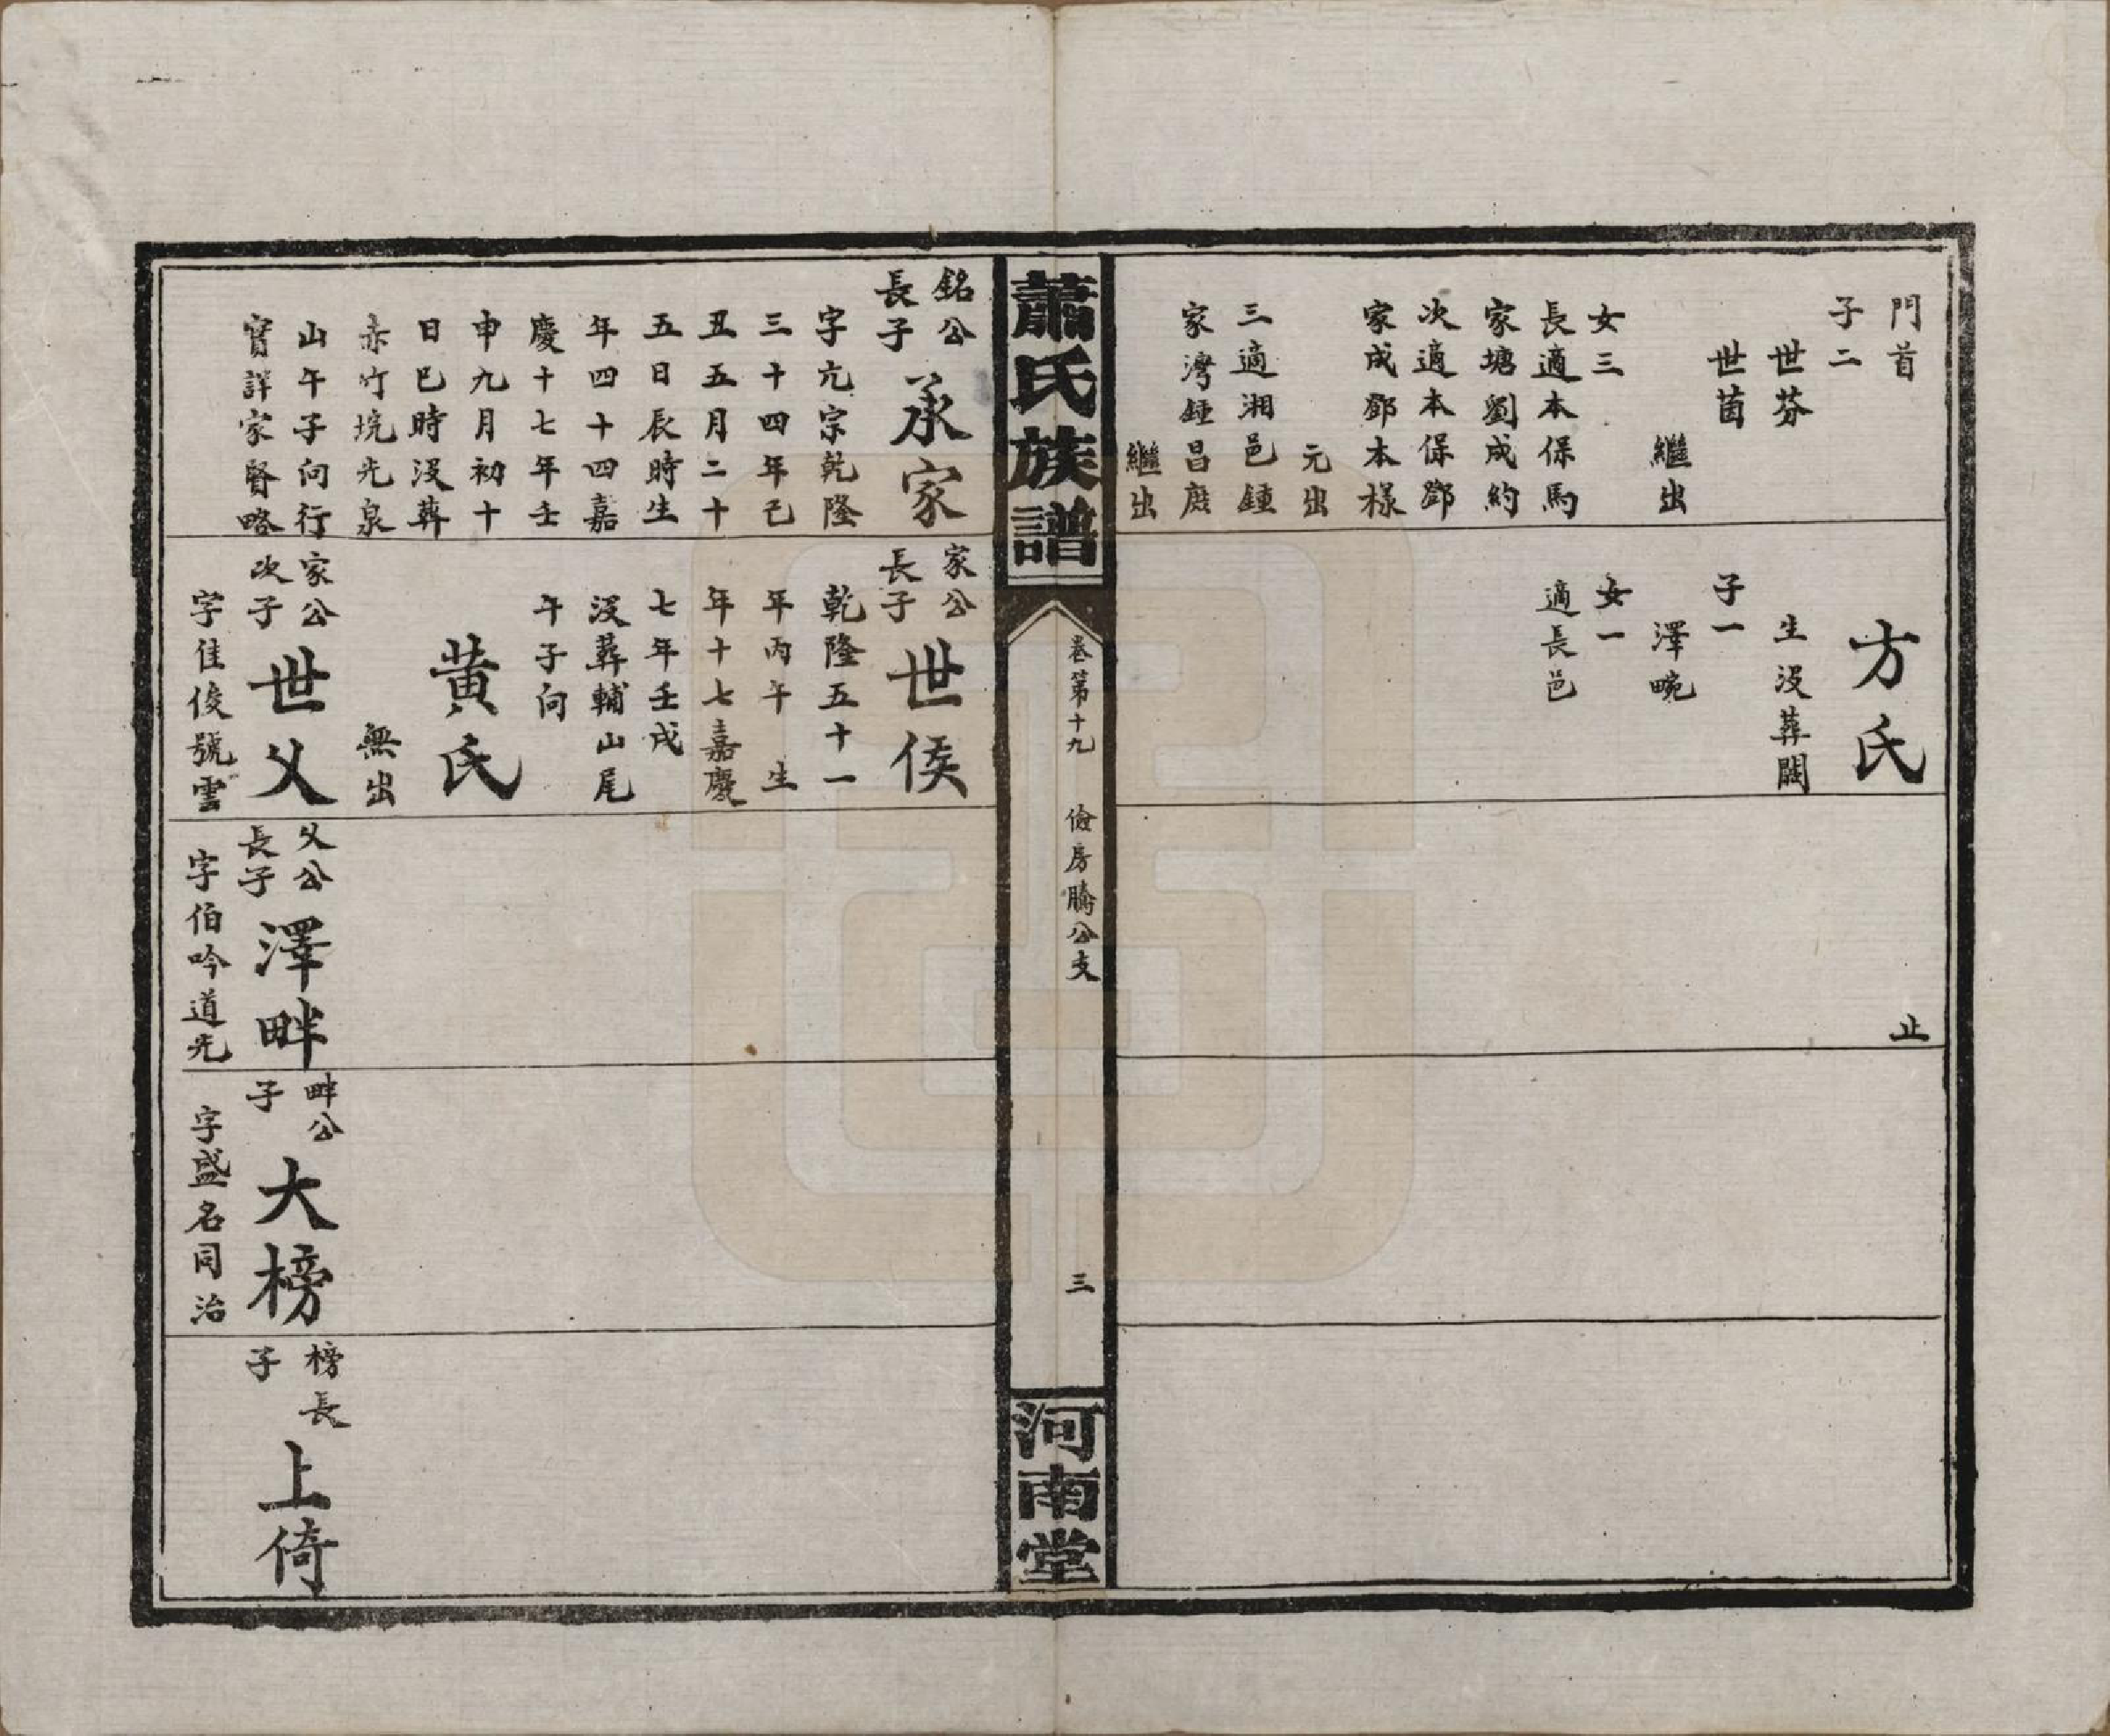 門首
子二
世芬
世茵
繼出
女三
長適本保馬
家塘劉成約
次適本保鄧
家成鄧本樣
元出
三適湘邑鍾
家灣鍾昌庶
繼出
方氏
生沒葬闕
子一
澤畹
女一
適長邑
止
蕭氏族譜
卷第十九
儉房騰公支
三
河南堂
銘公
長子
承家
字亢宗乾隆
三十四年己
丑五月二十
五日辰時生
年四十四嘉
慶十七年壬
申九月初十
日巳時沒葬
赤竹坑光泉
山午子向行
實詳家賢略
家公
長子
世侯
乾隆五十一
年丙午 生
年十七嘉慶
七年壬戌
沒葬輔山尾
午子向
黃氏
無出
家公
次子
世父
字佳俊號雲
父公
長子
澤畔
字伯吟道光
畔公
子
大榜
字盛名同治
榜長
子
上倚